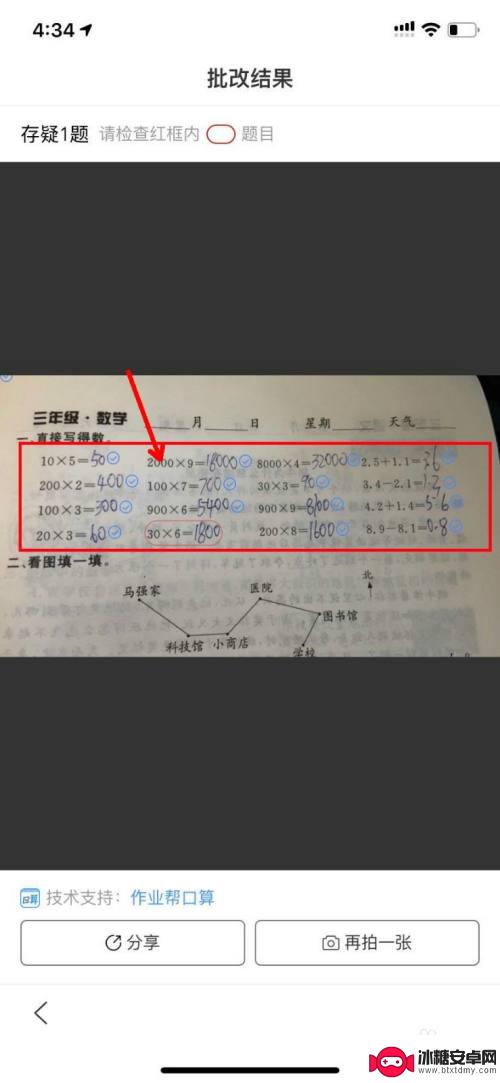 4:34
批改结果
存疑1题 请检查红框内 题目
三年级·数学 月 日 星期 天气
一、直接写得数。
10×5=50 2000×9=18000 8000×4=32000 2.5+1.1=3.6
200×2=400 100×7=700 30×3=90 3.4-2.1=1.3
100×3=300 900×6=5400 900×9=8100 4.2+1.4=5.6
20×3=60 30×6=1800 200×8=1600 8.9-8.1=0.8
二、看图填一填。
北
马强家 医院
图书馆
科技馆 小商店
学校
口算 技术支持：作业帮口算
分享 再拍一张
冰糖安卓网
www.btxtdmy.com